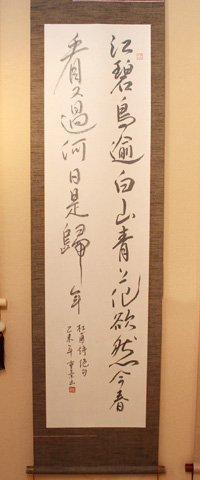 江碧鳥逾白山青花欲然今春
看又過何日是歸年
杜甫詩絶句
己未年